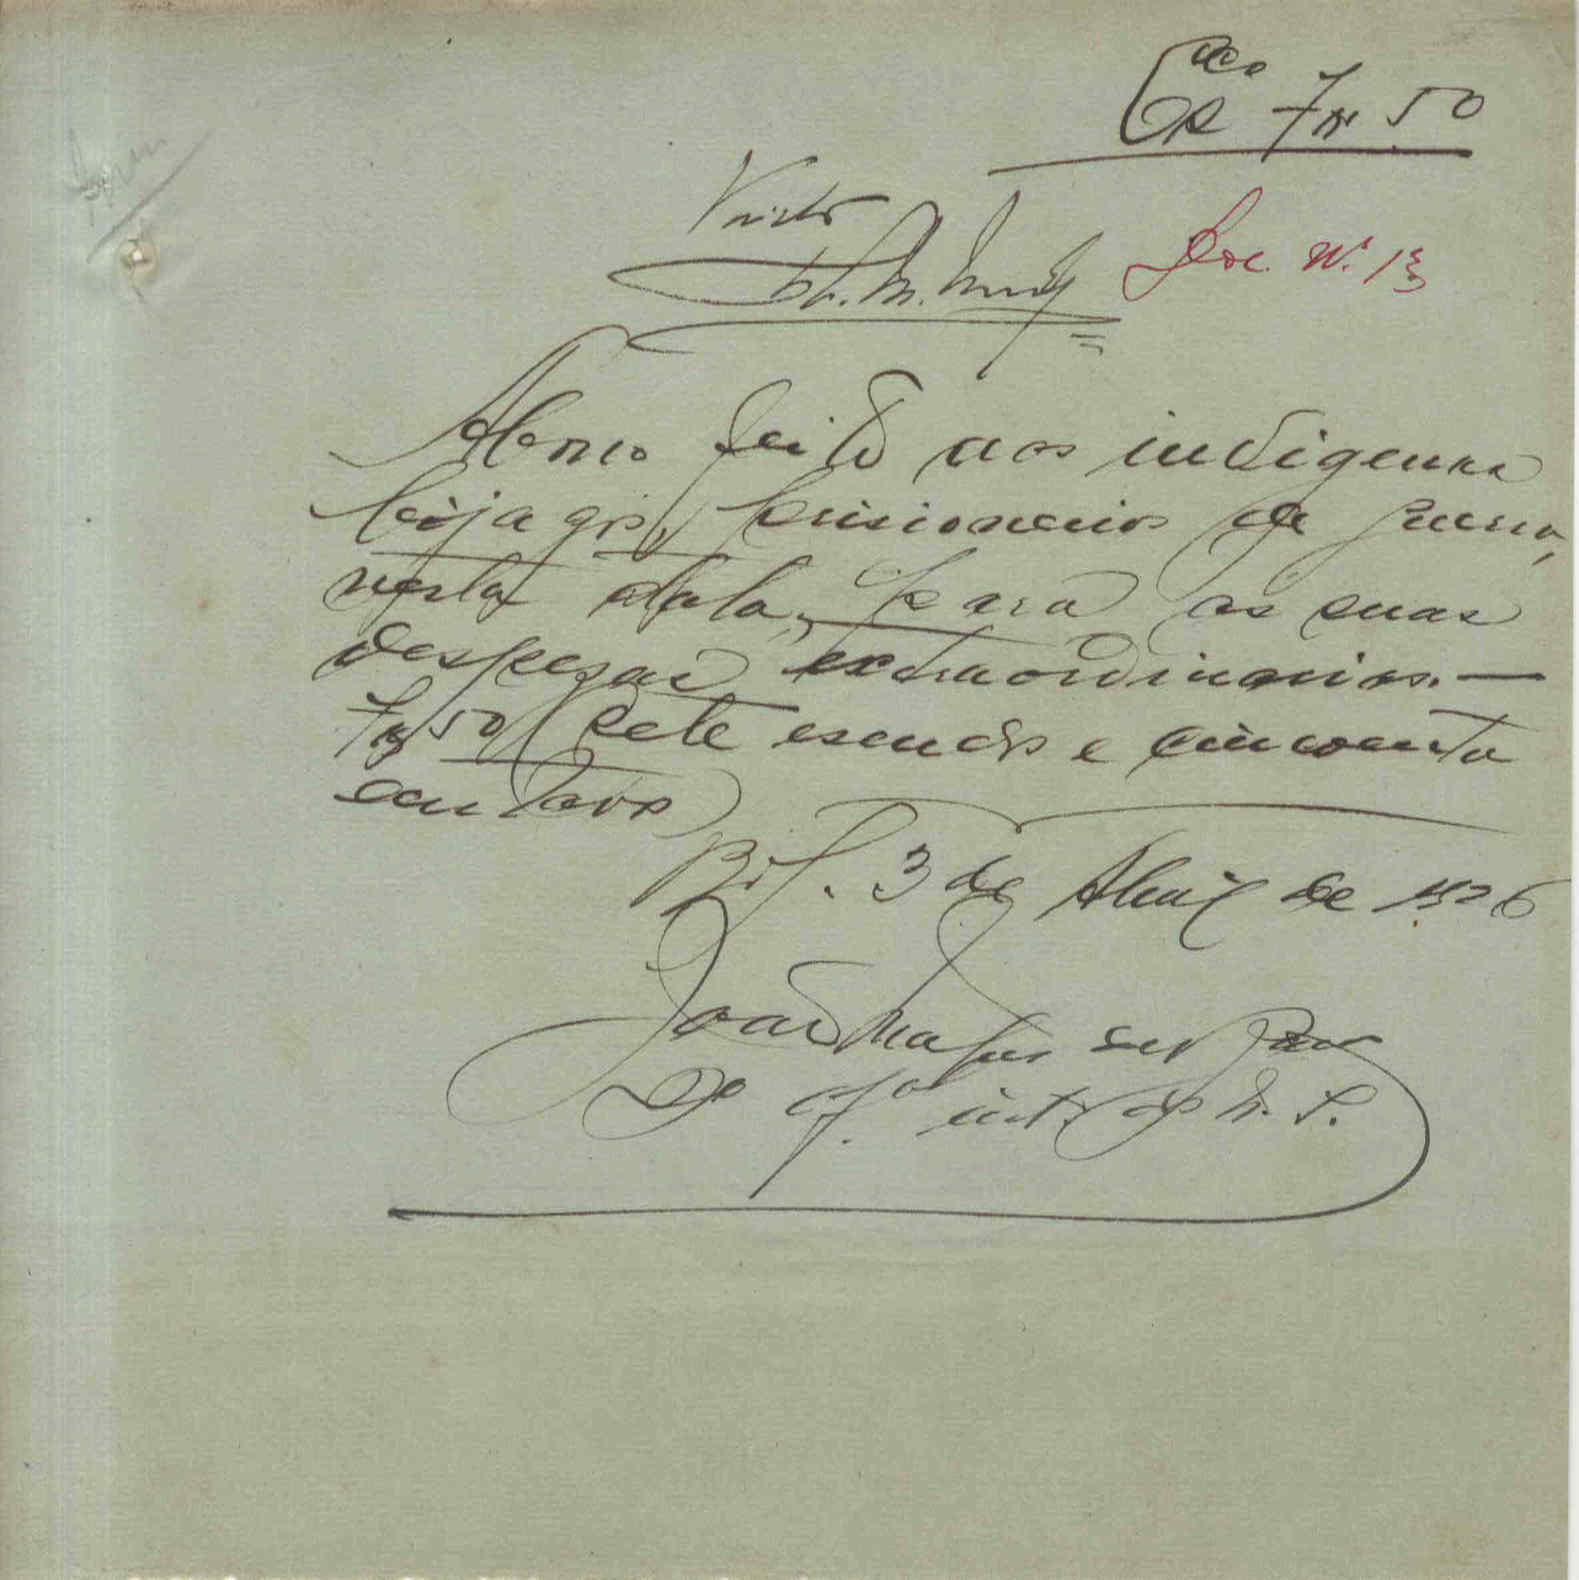 7$50
Visto
Doc. Nº 13
Abono feito aos indigenas
bijagós, prisioneiros de guerra,
nesta data, para as suas
despezas extraordinarias. —
7$50 (Sete escudos e cincoenta
centavos)
3 de Abril de 1926
João